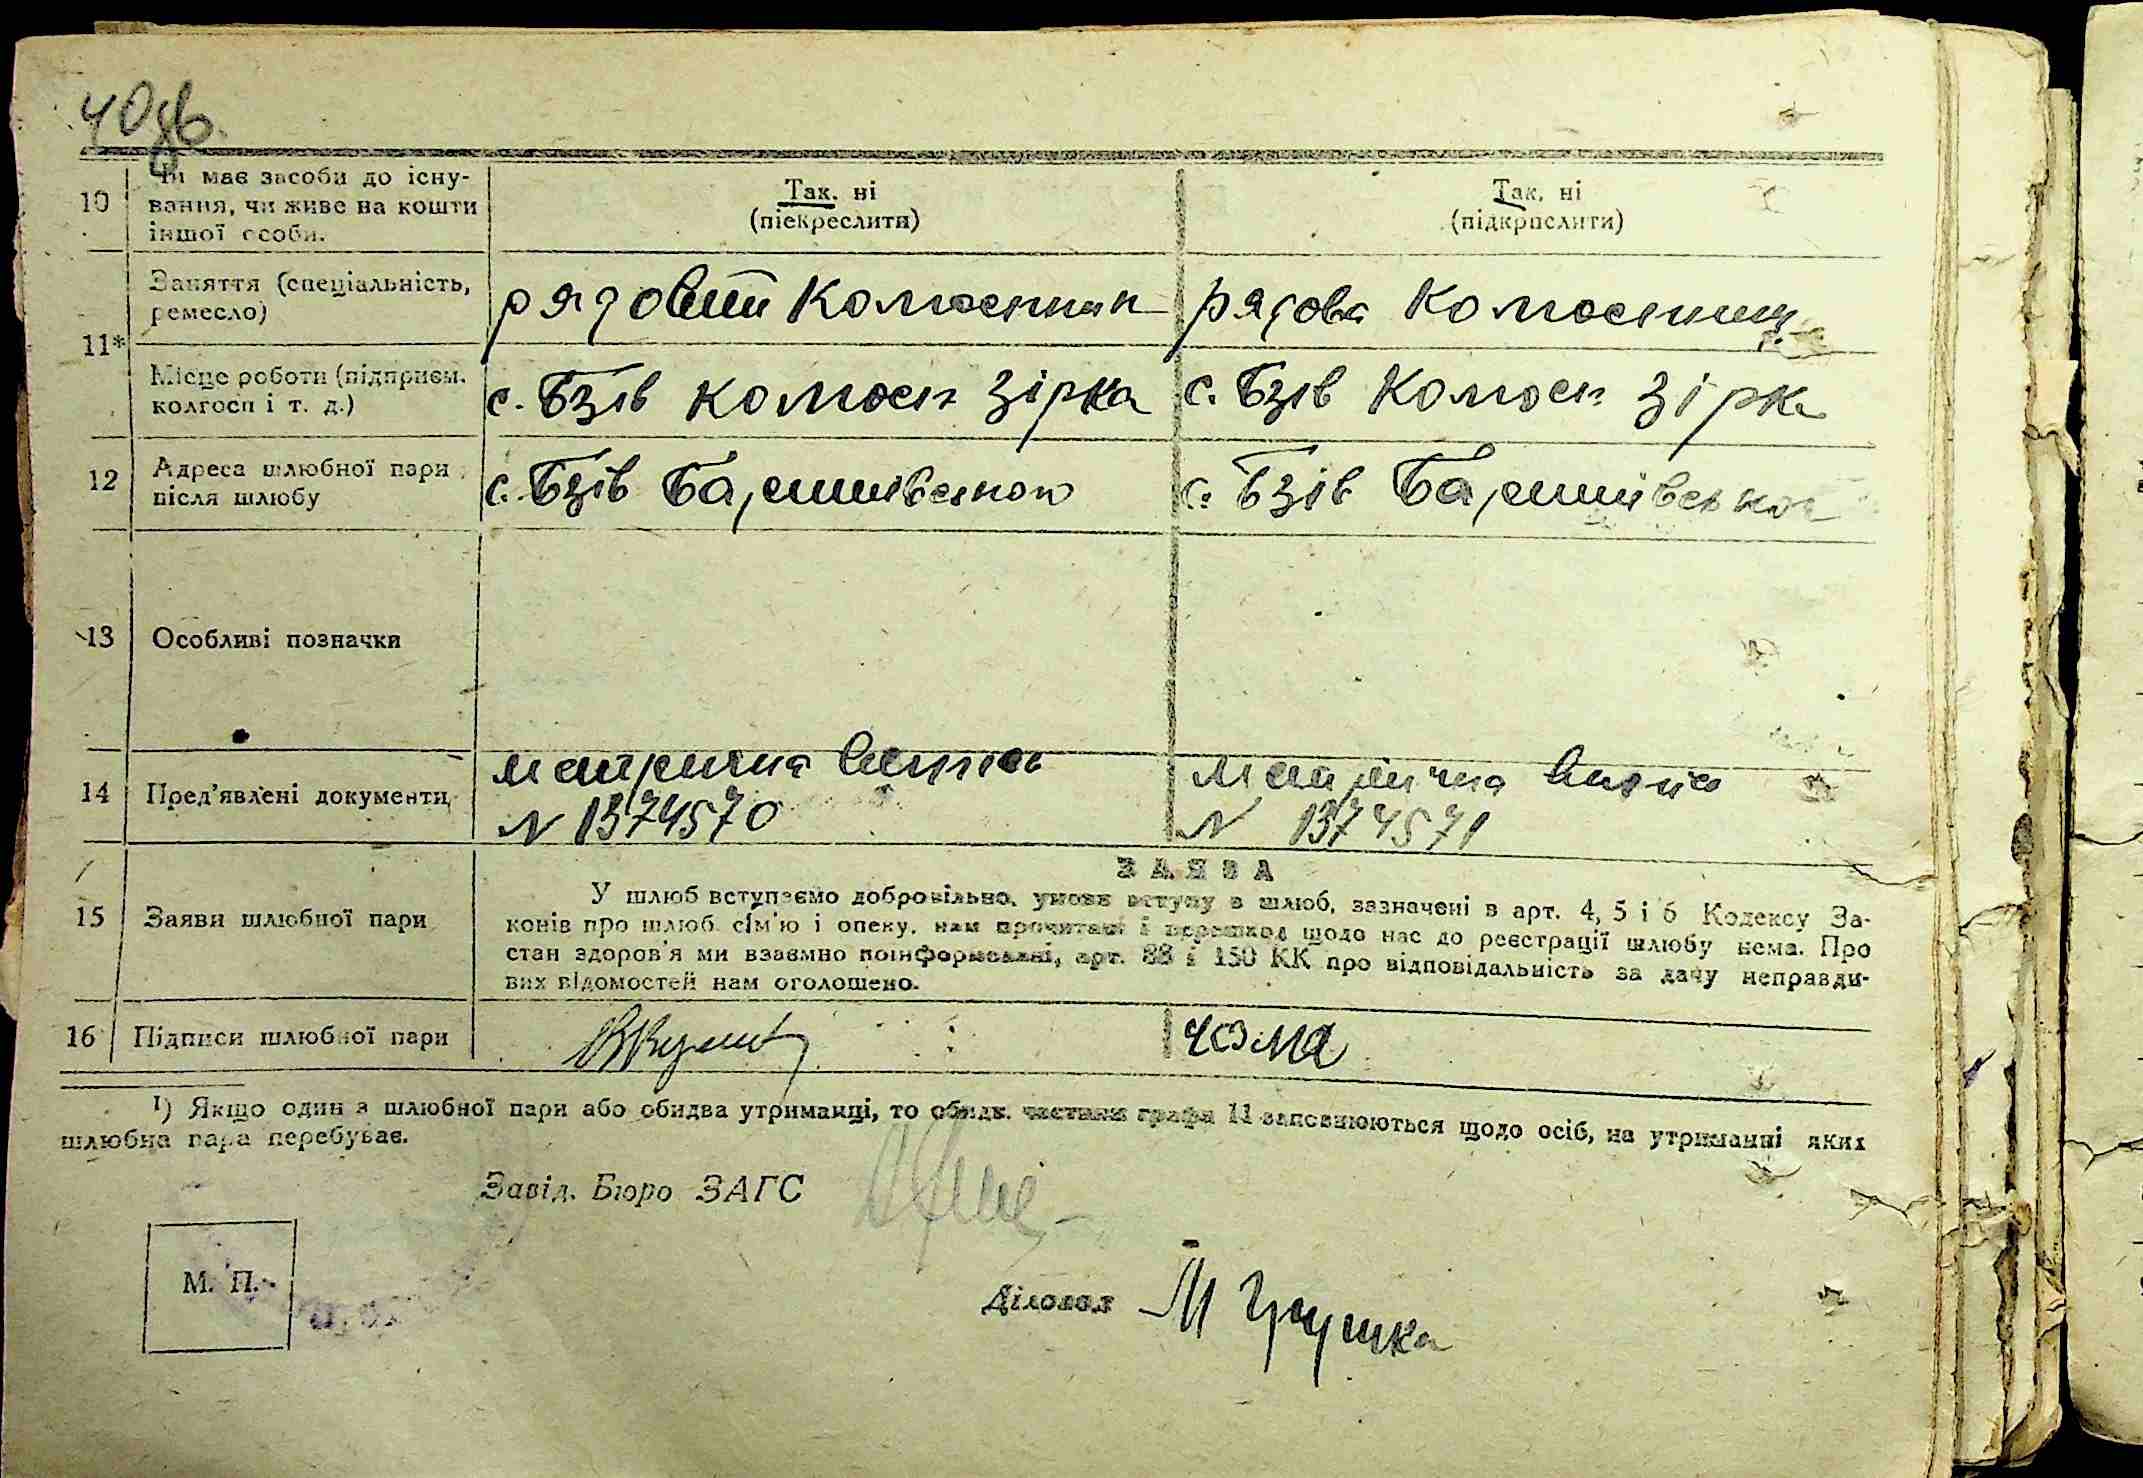 40зв.
10 Чи має засоби до існу- Так. ні Так, ні
вання, чи живе на кошти (піекреслити) (підкрпслити)
іншої особи.
Заняття (спеціальність, рядовий колгоспник рядова колгоспниця
ремесло)
11*
Місце роботи (підприєм. с. Бзів колгосп зірка с. Бзів колгосп зірка
колгосп і т. д.)
12 Адреса шлюбної пари с. Бзів Баришівського с. Бзів Баришівського
після шлюбу
13 Особливі позначки
метрична виписка метрична виписка
14 Пред'явлені документи
N 1374570 N 1374571
ЗАЯВА
У шлюб вступаємо добровільно, умови вступу в шлюб, зазначені в арт. 4, 5 і 6 Кодексу За-
15 Заяви шлюбної пари конів про шлюб сім'ю і опеку, нам прочитані і перешкод щодо нас до реєстрації шлюбу нема. Про
стан здоров'я ми взаємно поінформовані, арт. 88 і 150 КК про відповідальність за дачу неправди-
вих відомостей нам оголошено.
16 Підписи шлюбної пари
¹) Якщо один з шлюбної пари або обидва утриманці, то обидв. частини графи 11 заповнюються щодо осіб, на утриманні яких
шлюбна пара перебуває.
Завід. Бюро ЗАГС
М. П.
Діловод М Грушка